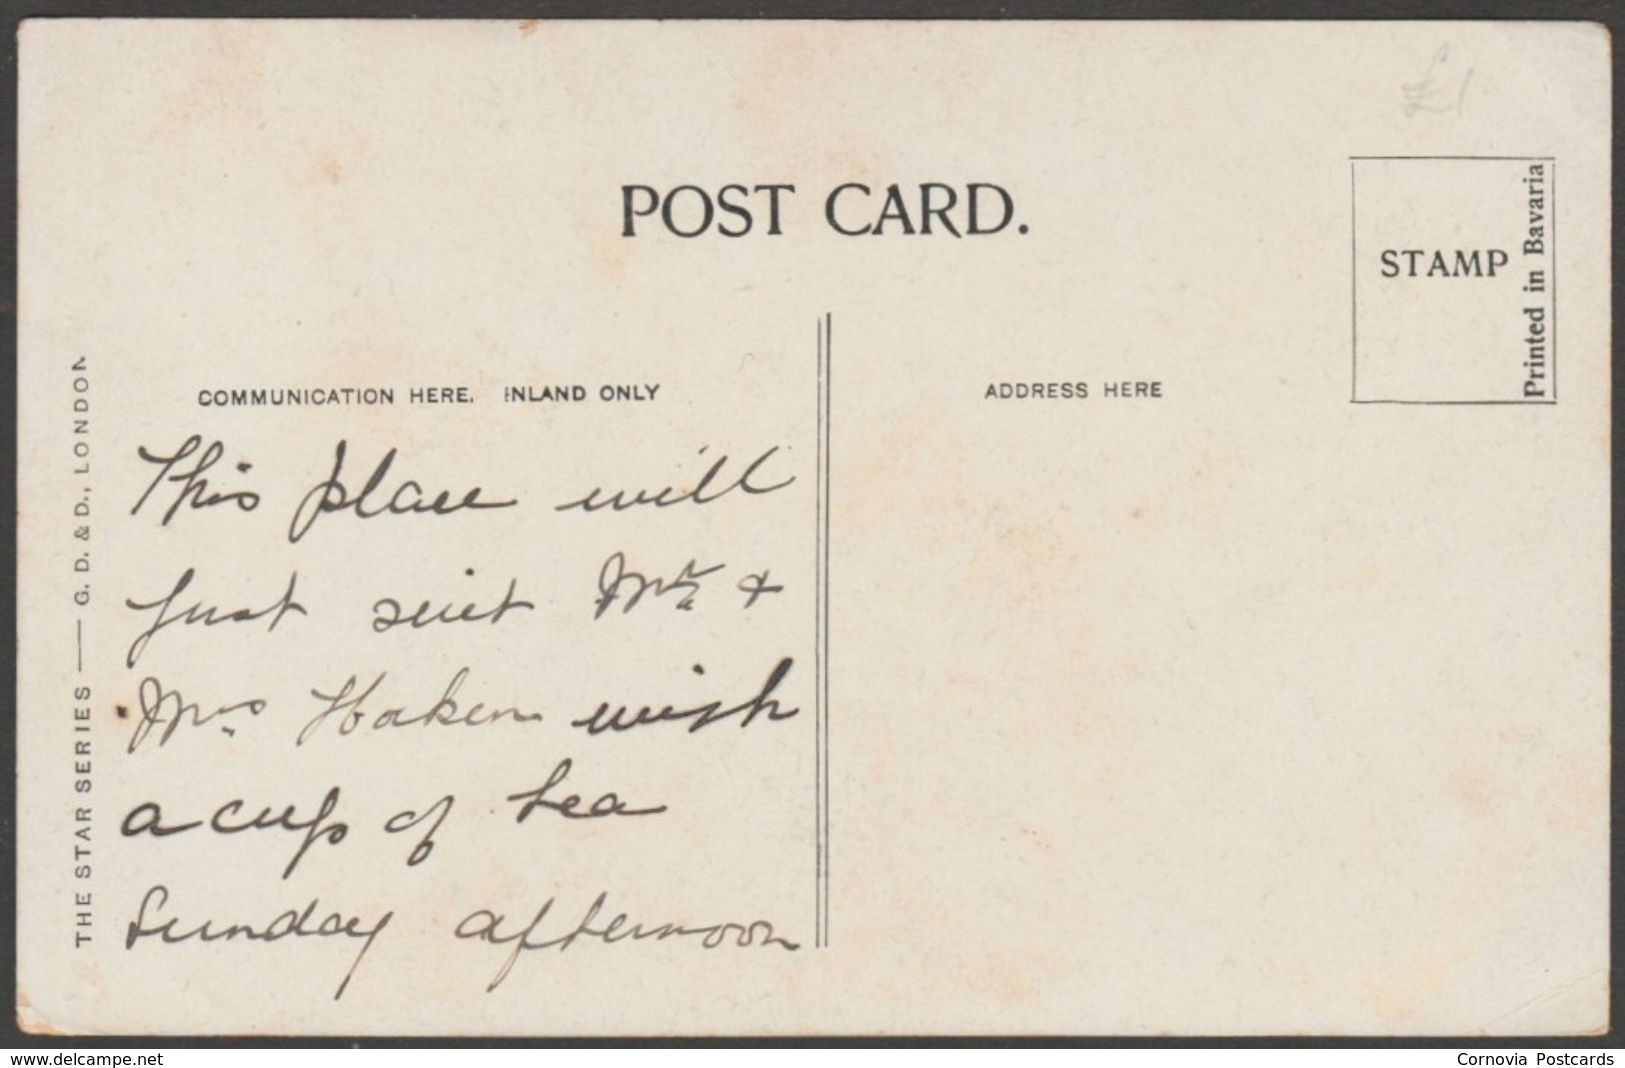 £1
POST CARD.
STAMP
Printed in Bavaria
COMMUNICATION HERE. INLAND ONLY
ADDRESS HERE
THE STAR SERIES — G. D. & D., LONDON
This place will
just suit Mr. &
Mrs. Hoken wish
a cup of tea
Sunday afternoon
www.delcampe.net
Cornovia Postcards